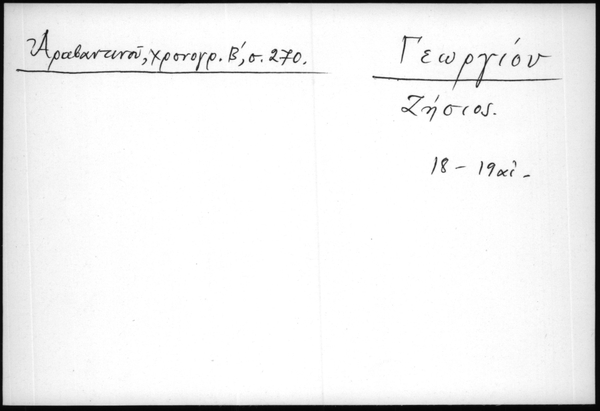 Ἀραβαντινοῦ, χρονογρ. Β΄, σ. 270.
Γεωργίου
Ζήσιος.
18 - 19 αἰ.